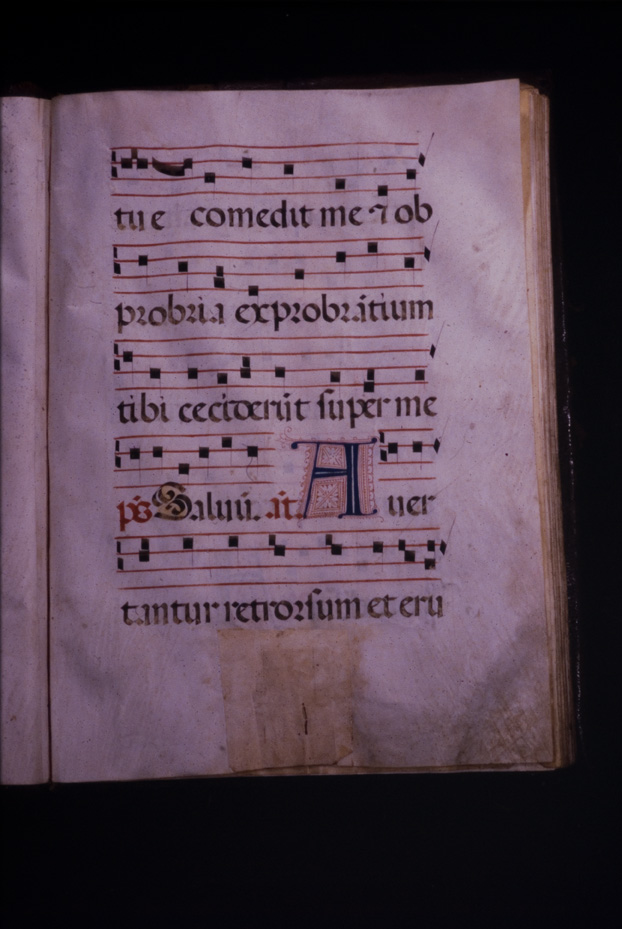 tue comedit me ⁊ ob
probria exprobrãtium
tibi ceciderũt super me
p̃s Saluũ. ãt. A uer
tantur retrorsum et eru